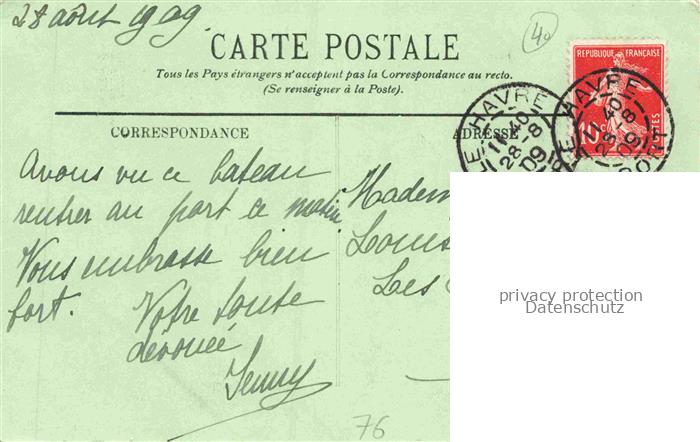 28 août 1909.
40
CARTE POSTALE
Tous les Pays étrangers n'acceptent pas la Correspondance au recto.
(Se renseigner à la Poste).
REPUBLIQUE FRANÇAISE
POSTES
LE HAVRE
11 40
28-8
09
LE HAVRE
11 40
28-8
09
PORT
CORRESPONDANCE
ADRESSE
Avons vu ce bateau
rentrer au port ce matin
Vous embrasse bien
fort.
Votre toute
dévouée
Jenny
Madem
Louis
Les
privacy protection
Datenschutz
76